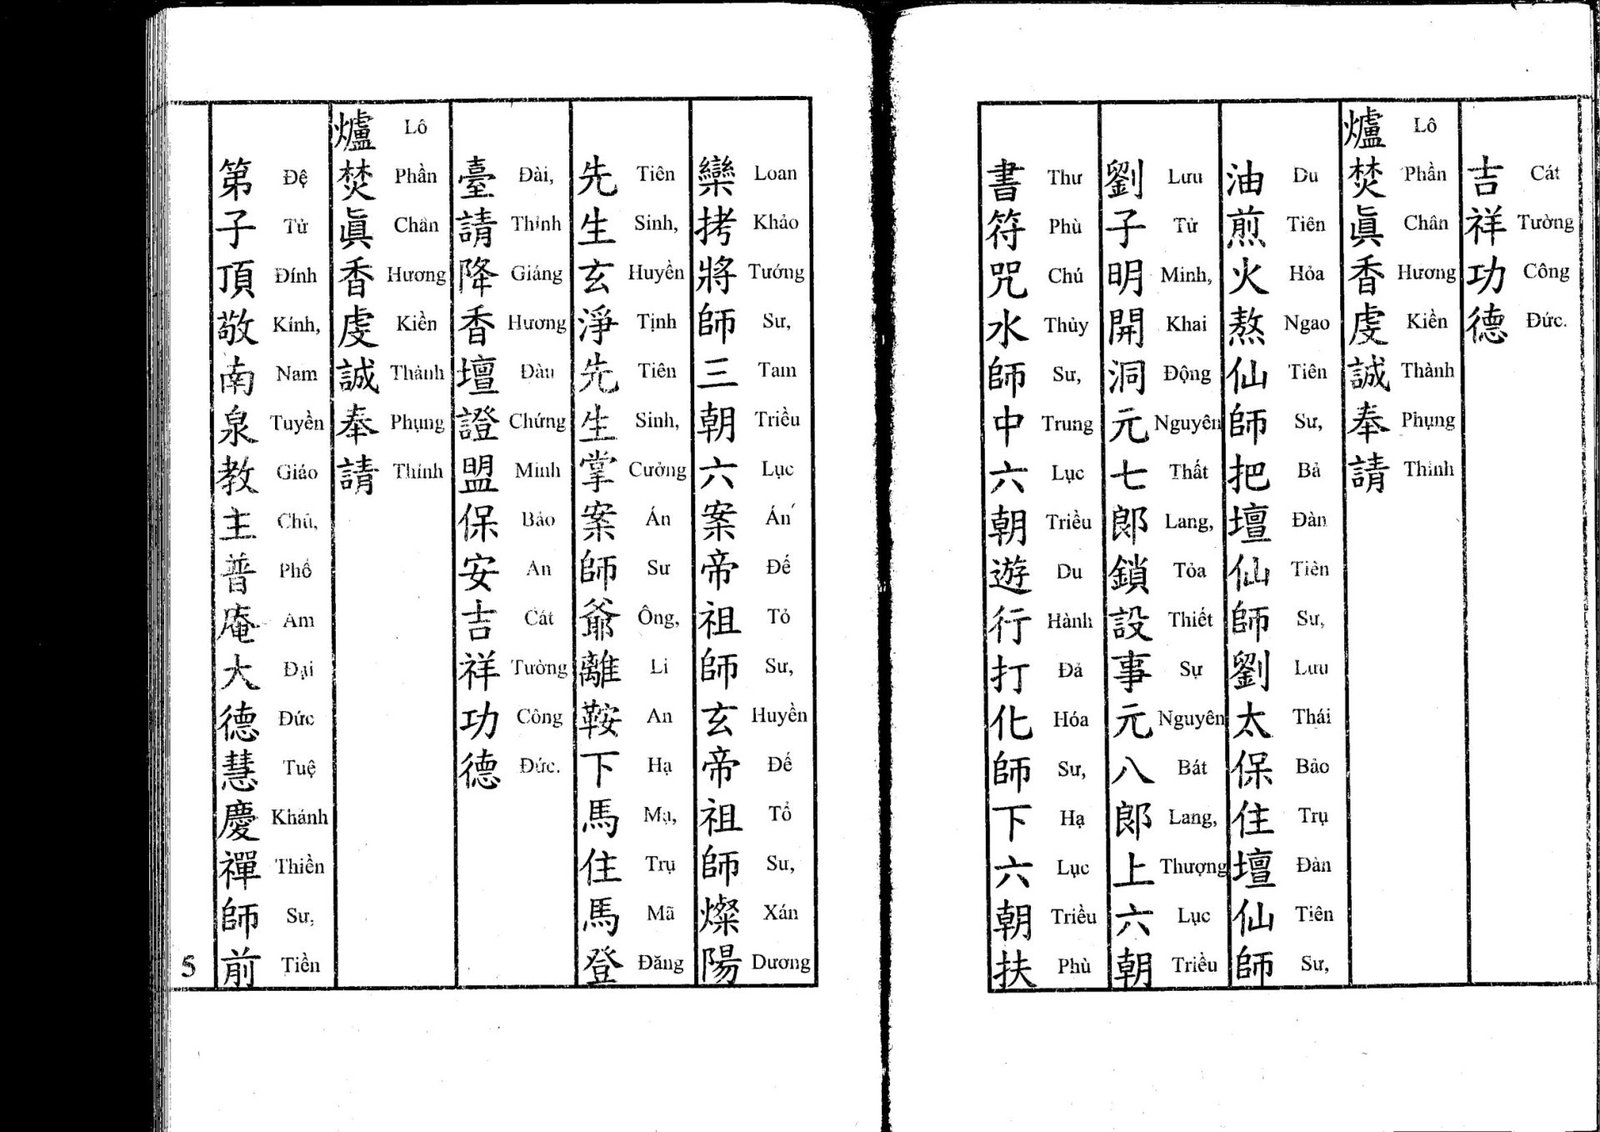 吉祥功德
Cát Tường Công Đức.
爐焚眞香虔誠奉請
Lô Phần Chân Hương Kiền Thành Phụng Thỉnh
油煎火熬仙師把壇仙師劉太保住壇仙師
Du Tiên Hỏa Ngao Tiên Sư, Bả Đàn Tiên Sư, Lưu Thái Bảo Trụ Đàn Tiên Sư,
劉子明開洞元七郎鎖設事元八郎上六朝
Lưu Tử Minh, Khai Động Nguyên Thất Lang, Tỏa Thiết Sự Nguyên Bát Lang, Thượng Lục Triều
書符咒水師中六朝遊行打化師下六朝扶
Thư Phù Chú Thủy Sư, Trung Lục Triều Du Hành Đả Hóa Sư, Hạ Lục Triều Phù
欒拷將師三朝六案帝祖師玄帝祖師燦陽
Loan Khảo Tướng Sư, Tam Triều Lục Án Đế Tổ Sư, Huyền Đế Tổ Sư, Xán Dương
先生玄淨先生掌案師爺離鞍下馬住馬登
Tiên Sinh, Huyền Tịnh Tiên Sinh, Cưởng Án Sư Ông, Li An Hạ Mạ, Trụ Mã Đăng
臺請降香壇證盟保安吉祥功德
Đài, Thỉnh Giáng Hương Đàn Chứng Minh Bảo An Cát Tường Công Đức.
爐焚眞香虔誠奉請
Lô Phần Chân Hương Kiền Thành Phụng Thỉnh
第子頂敬南泉教主普庵大德慧慶禪師前
Đệ Tử Đính Kính, Nam Tuyền Giáo Chủ, Phổ Am Đại Đức Tuệ Khánh Thiền Sư, Tiền
5